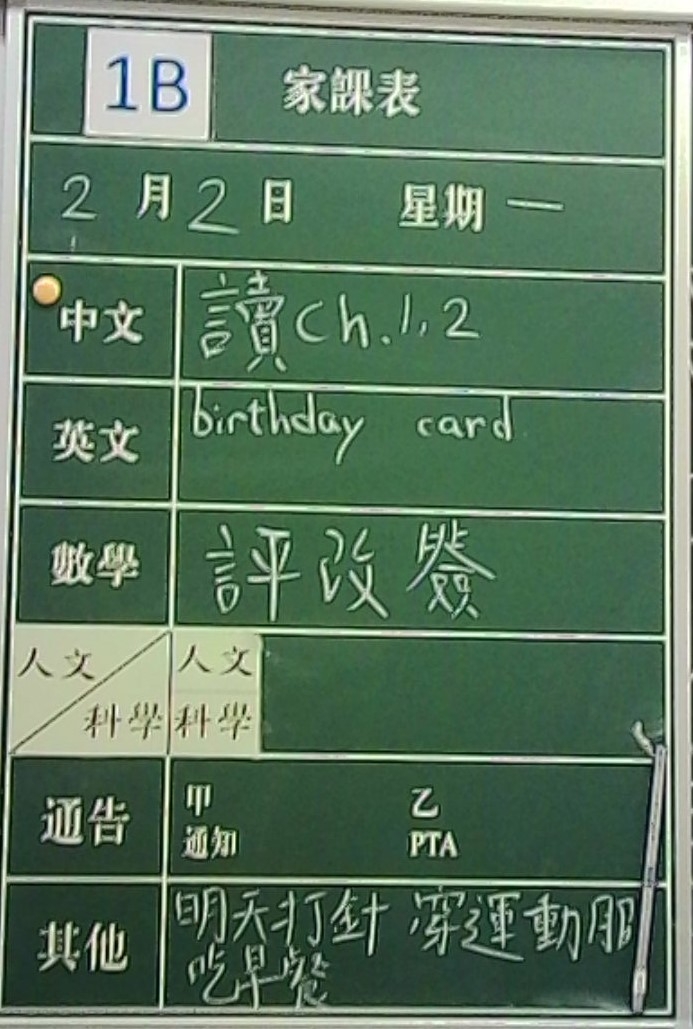 1B 家課表
2 月 2 日 星期 一
中文 讀Ch.1,2
英文 birthday card
數學 評改簽
人文 人文
科學 科學
通告 甲 乙
通知 PTA
其他 明天打針 穿運動服
吃早餐